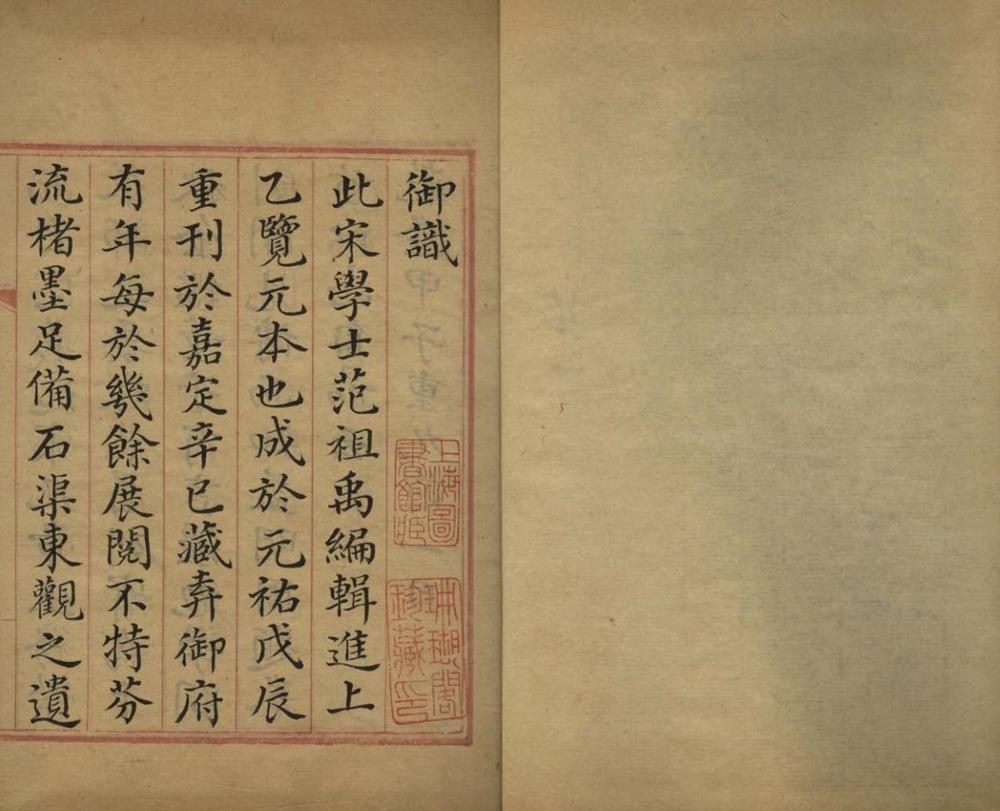 御識
此宋學士范祖禹編輯進上
乙覽元本也成於元祐戊辰
重刊於嘉定辛巳藏弆御府
有年每於幾餘展閱不特芬
流楮墨足備石渠東觀之遺
上海圖書館藏
琳瑯閣珍藏印